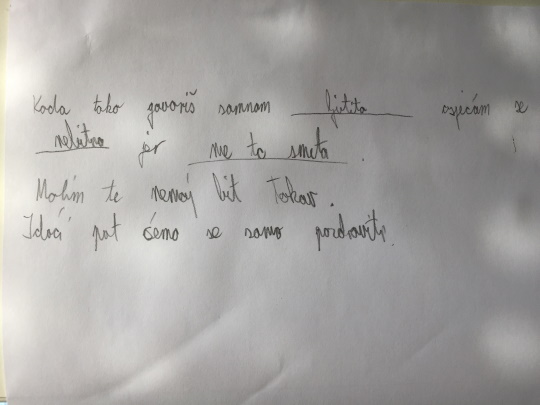 Kada tako govoriš samnom ljutito osjećam se
nebitno jer me to smeta.
Molim te nemoj bit Takav.
Idoći put ćemo se samo pozdraviti.